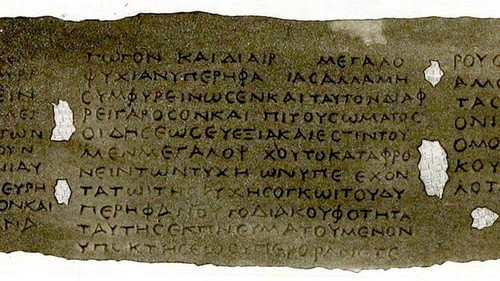 ΕΙΝ
ΤΩΝ
ΕΥΡΗ
ΟΝΚΑΙ
ΚΑΙΔΙΑΙΡ ΜΕΓΑΛΟ
ΨΥΧΙΑΝΥΠΕΡΗΦΑ ΙΑϹΑΛΛΑΜΗ
ϹΥΜΦΥΡΕΙΝΩϹΕΝΚΑΙΤΑΥΤΟΝΔΙΑΦ
ΡΕΙΓΑΡΟϹΟΝΚΑΙ ΠΙΤΟΥϹΩΜΑΤΟϹ
ΟΙΔΗϹΕΩϹΕΥΕΞΙΑΚΑΙΕϹΤΙΝΤΟΥ
ΜΕΝΜΕΓΑΛΟΨ ΧΟΥΤΟΚΑΤΑΦΡΟ
ΝΕΙΝΤΩΝΤΥΧΗ ΩΝΥΠΕ ΕΧΟΝ
ΤΑΤΩΙΤΗ ΥΧΗϹΟΓΚΩΙΤΟΥΔΥ
ΠΕΡΗΦΑΝΟ ΤΟΔΙΑΚΟΥΦΟΤΗΤΑ
ΤΑΥΤΗϹΕΚΠΝΕΥΜΑΤΟΥΜΕΝΟΝ
ΥΠΟΚΤΗϹΕΩϹ
ΡΟΥϹ
ΑΜ
ΤΑϹ
ΟΝΙ
ΟΜΟ
ΚΟΥ
ΛΟΤ